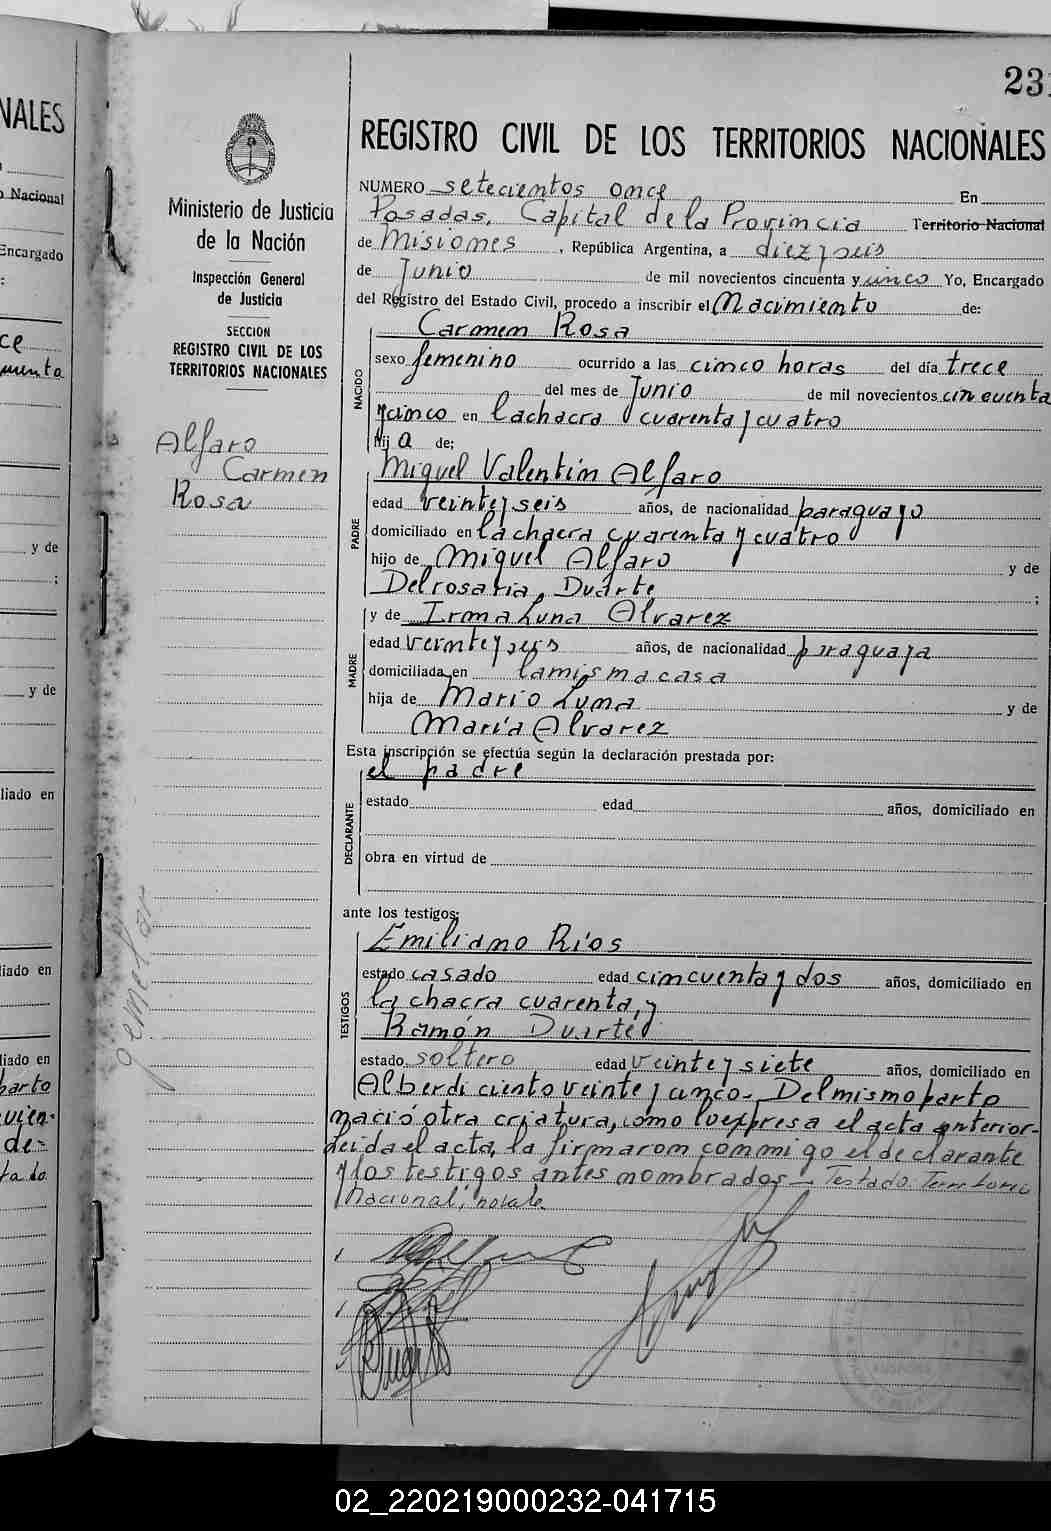 NALES
o Nacional
Encargado
:
ce
miento
y de
;
y de
liado en
liado en
liado en
parto
vien-
de-
tado
231
REGISTRO CIVIL DE LOS TERRITORIOS NACIONALES
Ministerio de Justicia
de la Nación
Inspección General
de Justicia
SECCION
REGISTRO CIVIL DE LOS
TERRITORIOS NACIONALES
Alfaro
Carmen
Rosa
gemelar
NUMERO setecientos once En
Posadas, Capital de la Provincia Territorio Nacional
de Misiones, República Argentina, a diez y seis
de Junio de mil novecientos cincuenta y cinco Yo, Encargado
del Registro del Estado Civil, procedo a inscribir el Nacimiento de:
NACIDO
Carmen Rosa
sexo femenino ocurrido a las cinco horas del día trece
del mes de Junio de mil novecientos cincuenta
y cinco en la chacra cuarenta y cuatro
hija de:
PADRE
Miguel Valentin Alfaro
edad veinte y seis años, de nacionalidad paraguayo
domiciliado en la chacra cuarenta y cuatro
hijo de Miguel Alfaro y de
Del rosaria Duarte ;
MADRE
y de Irma Luna Alvarez
edad veinte y seis años, de nacionalidad paraguaya
domiciliada en la misma casa
hija de Mario Luna y de
María Alvarez
Esta inscripción se efectúa según la declaración prestada por:
DECLARANTE
el padre
estado edad años, domiciliado en
obra en virtud de
ante los testigos:
TESTIGOS
Emiliano Ríos
estado casado edad cincuenta y dos años, domiciliado en
la chacra cuarenta, y
Ramón Duarte
estado soltero edad veinte y siete años, domiciliado en
Alberdi ciento veinte y cinco- Del mismo parto
nació otra criatura, como lo expresa el acta anterior-
leida el acta, la firmaron conmigo el declarante
y los testigos antes nombrados- Testado: Territorio
Nacional; no vale
02_220219000232-041715